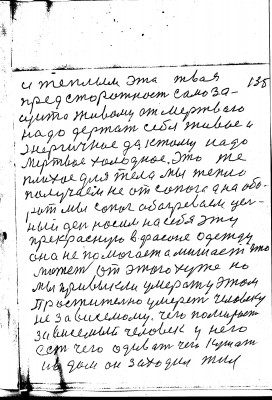 135
и теплым эта твая
предсторожност само за-
щита живому от мертваго
надо держат себя живое и
энергичное да ктому надо
мертвое холодное, Это же
плохое для тела мы тепло
получаем не от сопога а на обо-
рот мы сопог обогреваем цел-
ный ден носим на себя эту
прекрасную в фасоне одежду
она не помогает а мишает что
может от этого хуже но
мы привыкли умерат у этом
простително умерет человеку
не зависемому. чего помирает
зависемый человек у него
ест чего одеват чего кушат
и в дом он заходил жил